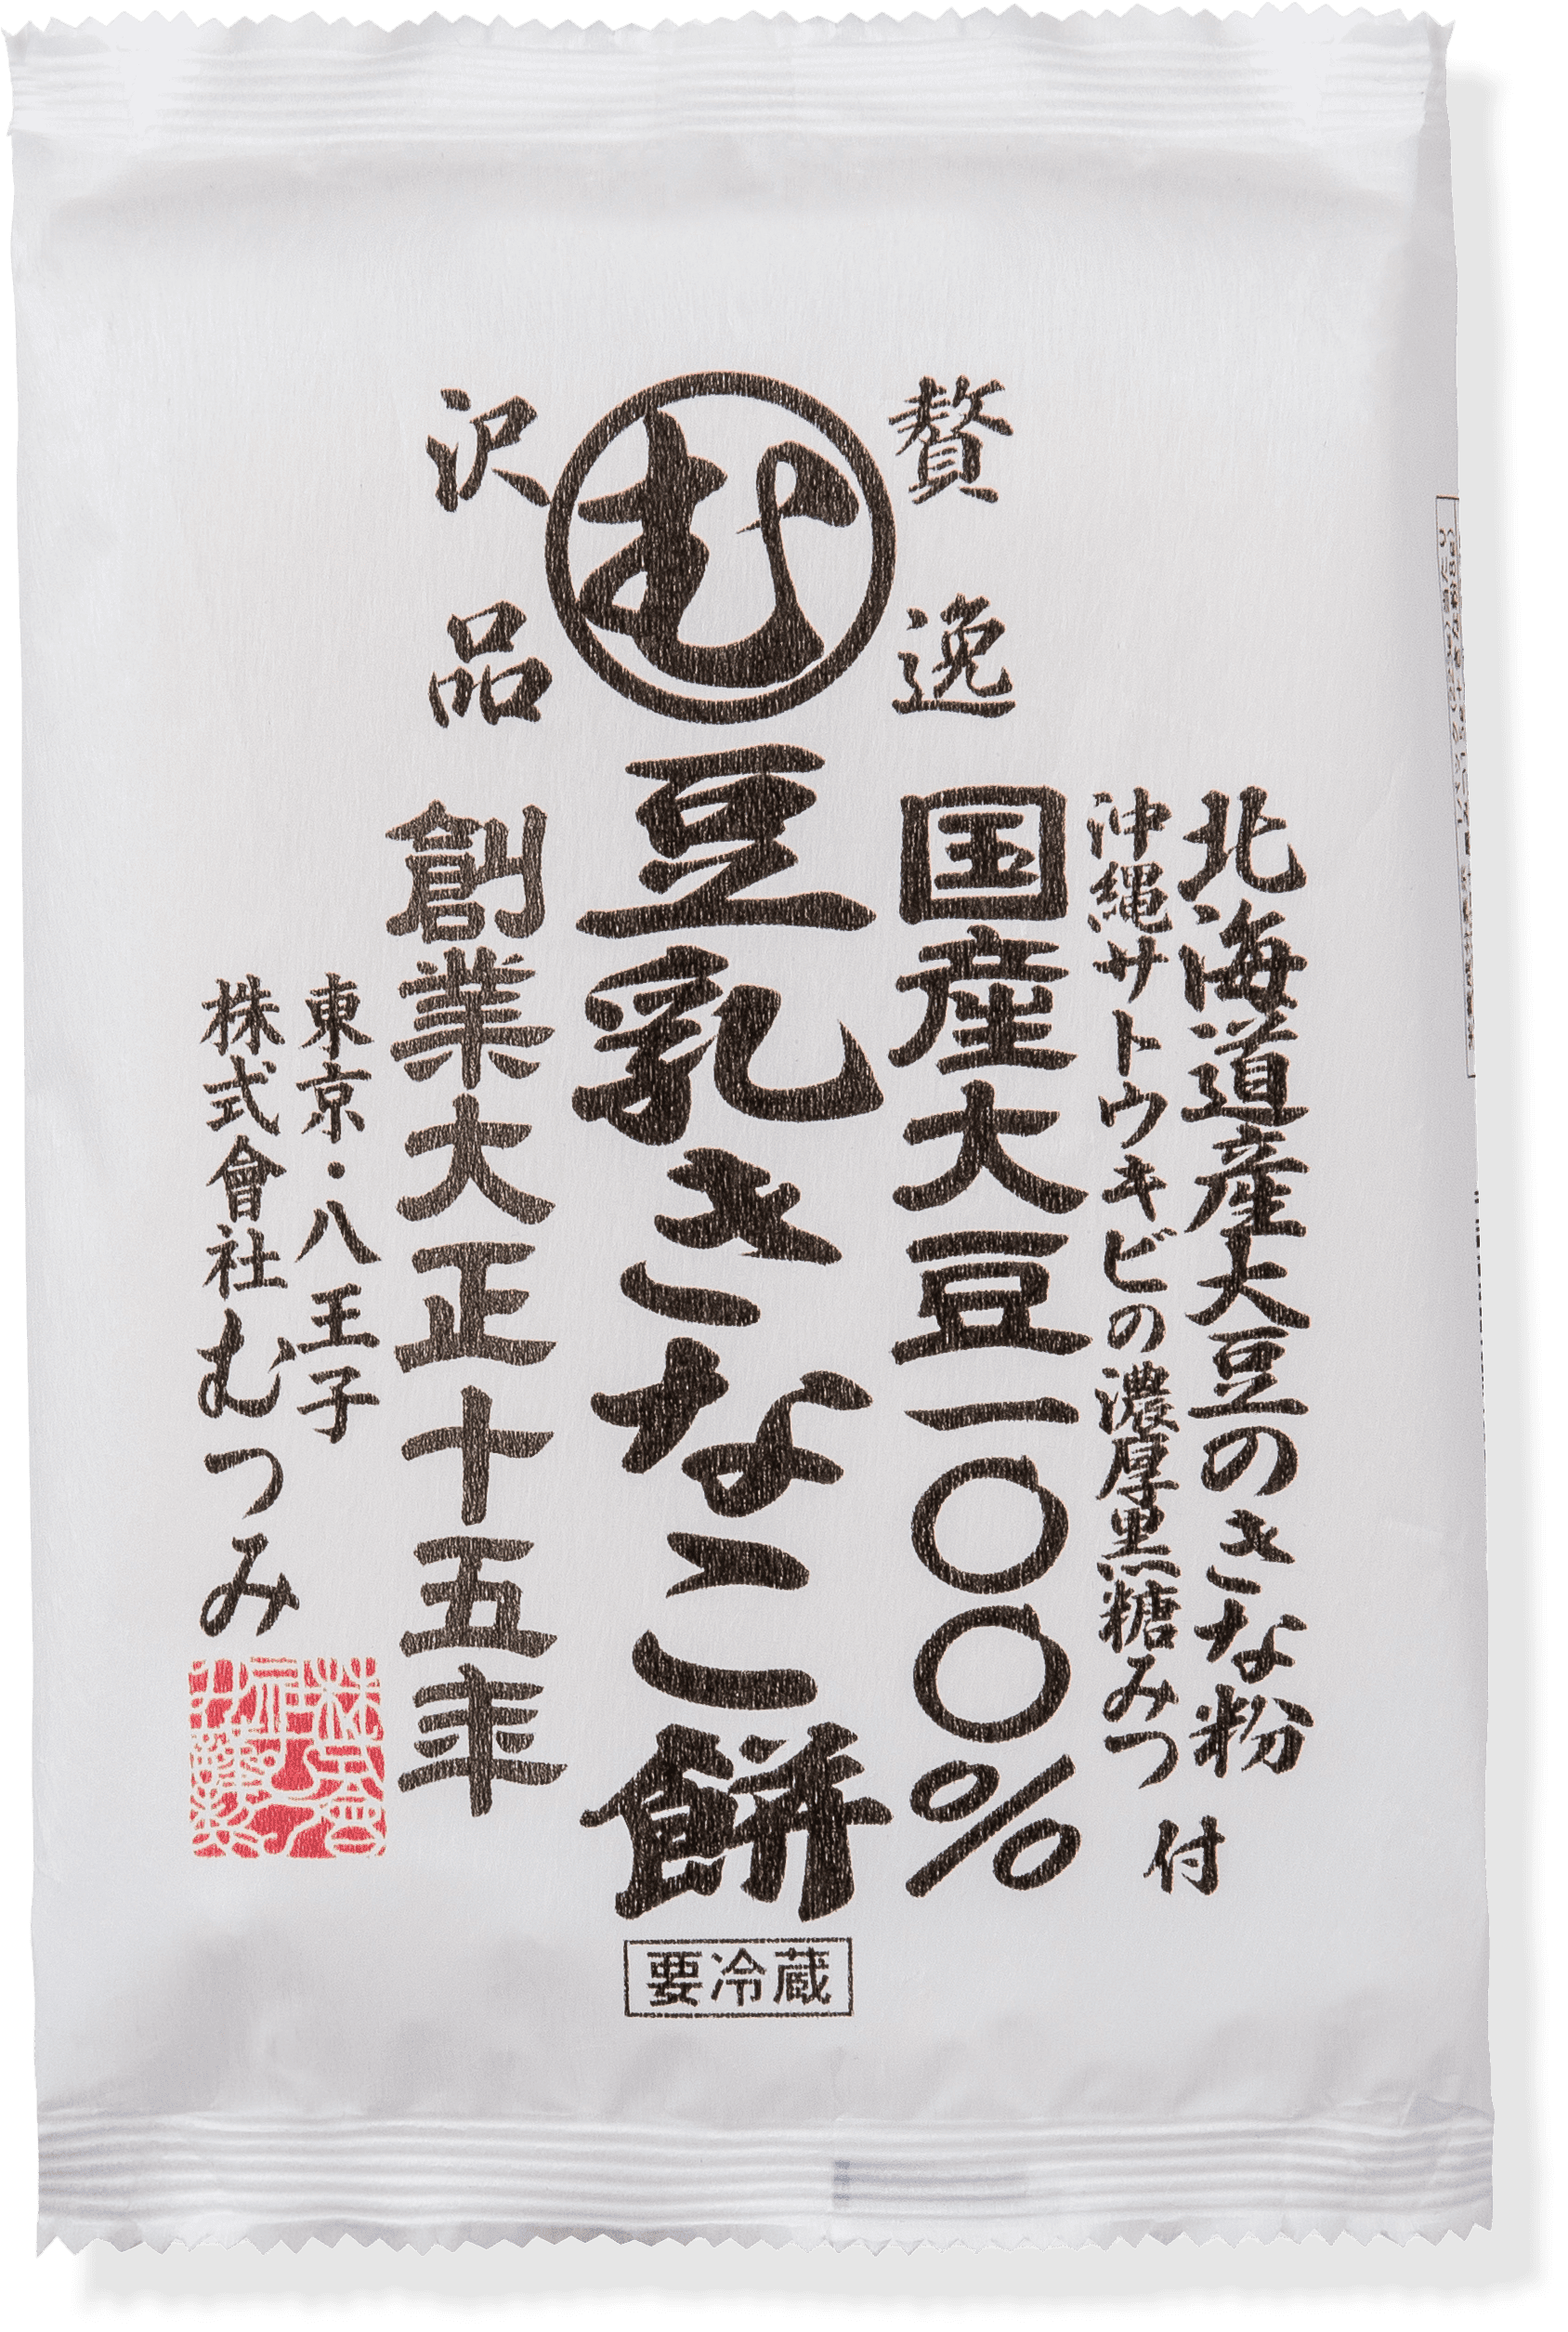 北海道産大豆のきな粉
沖縄サトウキビの濃厚黒糖みつ
付
国産大豆一〇〇%
贅沢
逸品
む
豆乳きなこ餅
要冷蔵
創業大正十五年
東京・八王子
株式會社むつみ